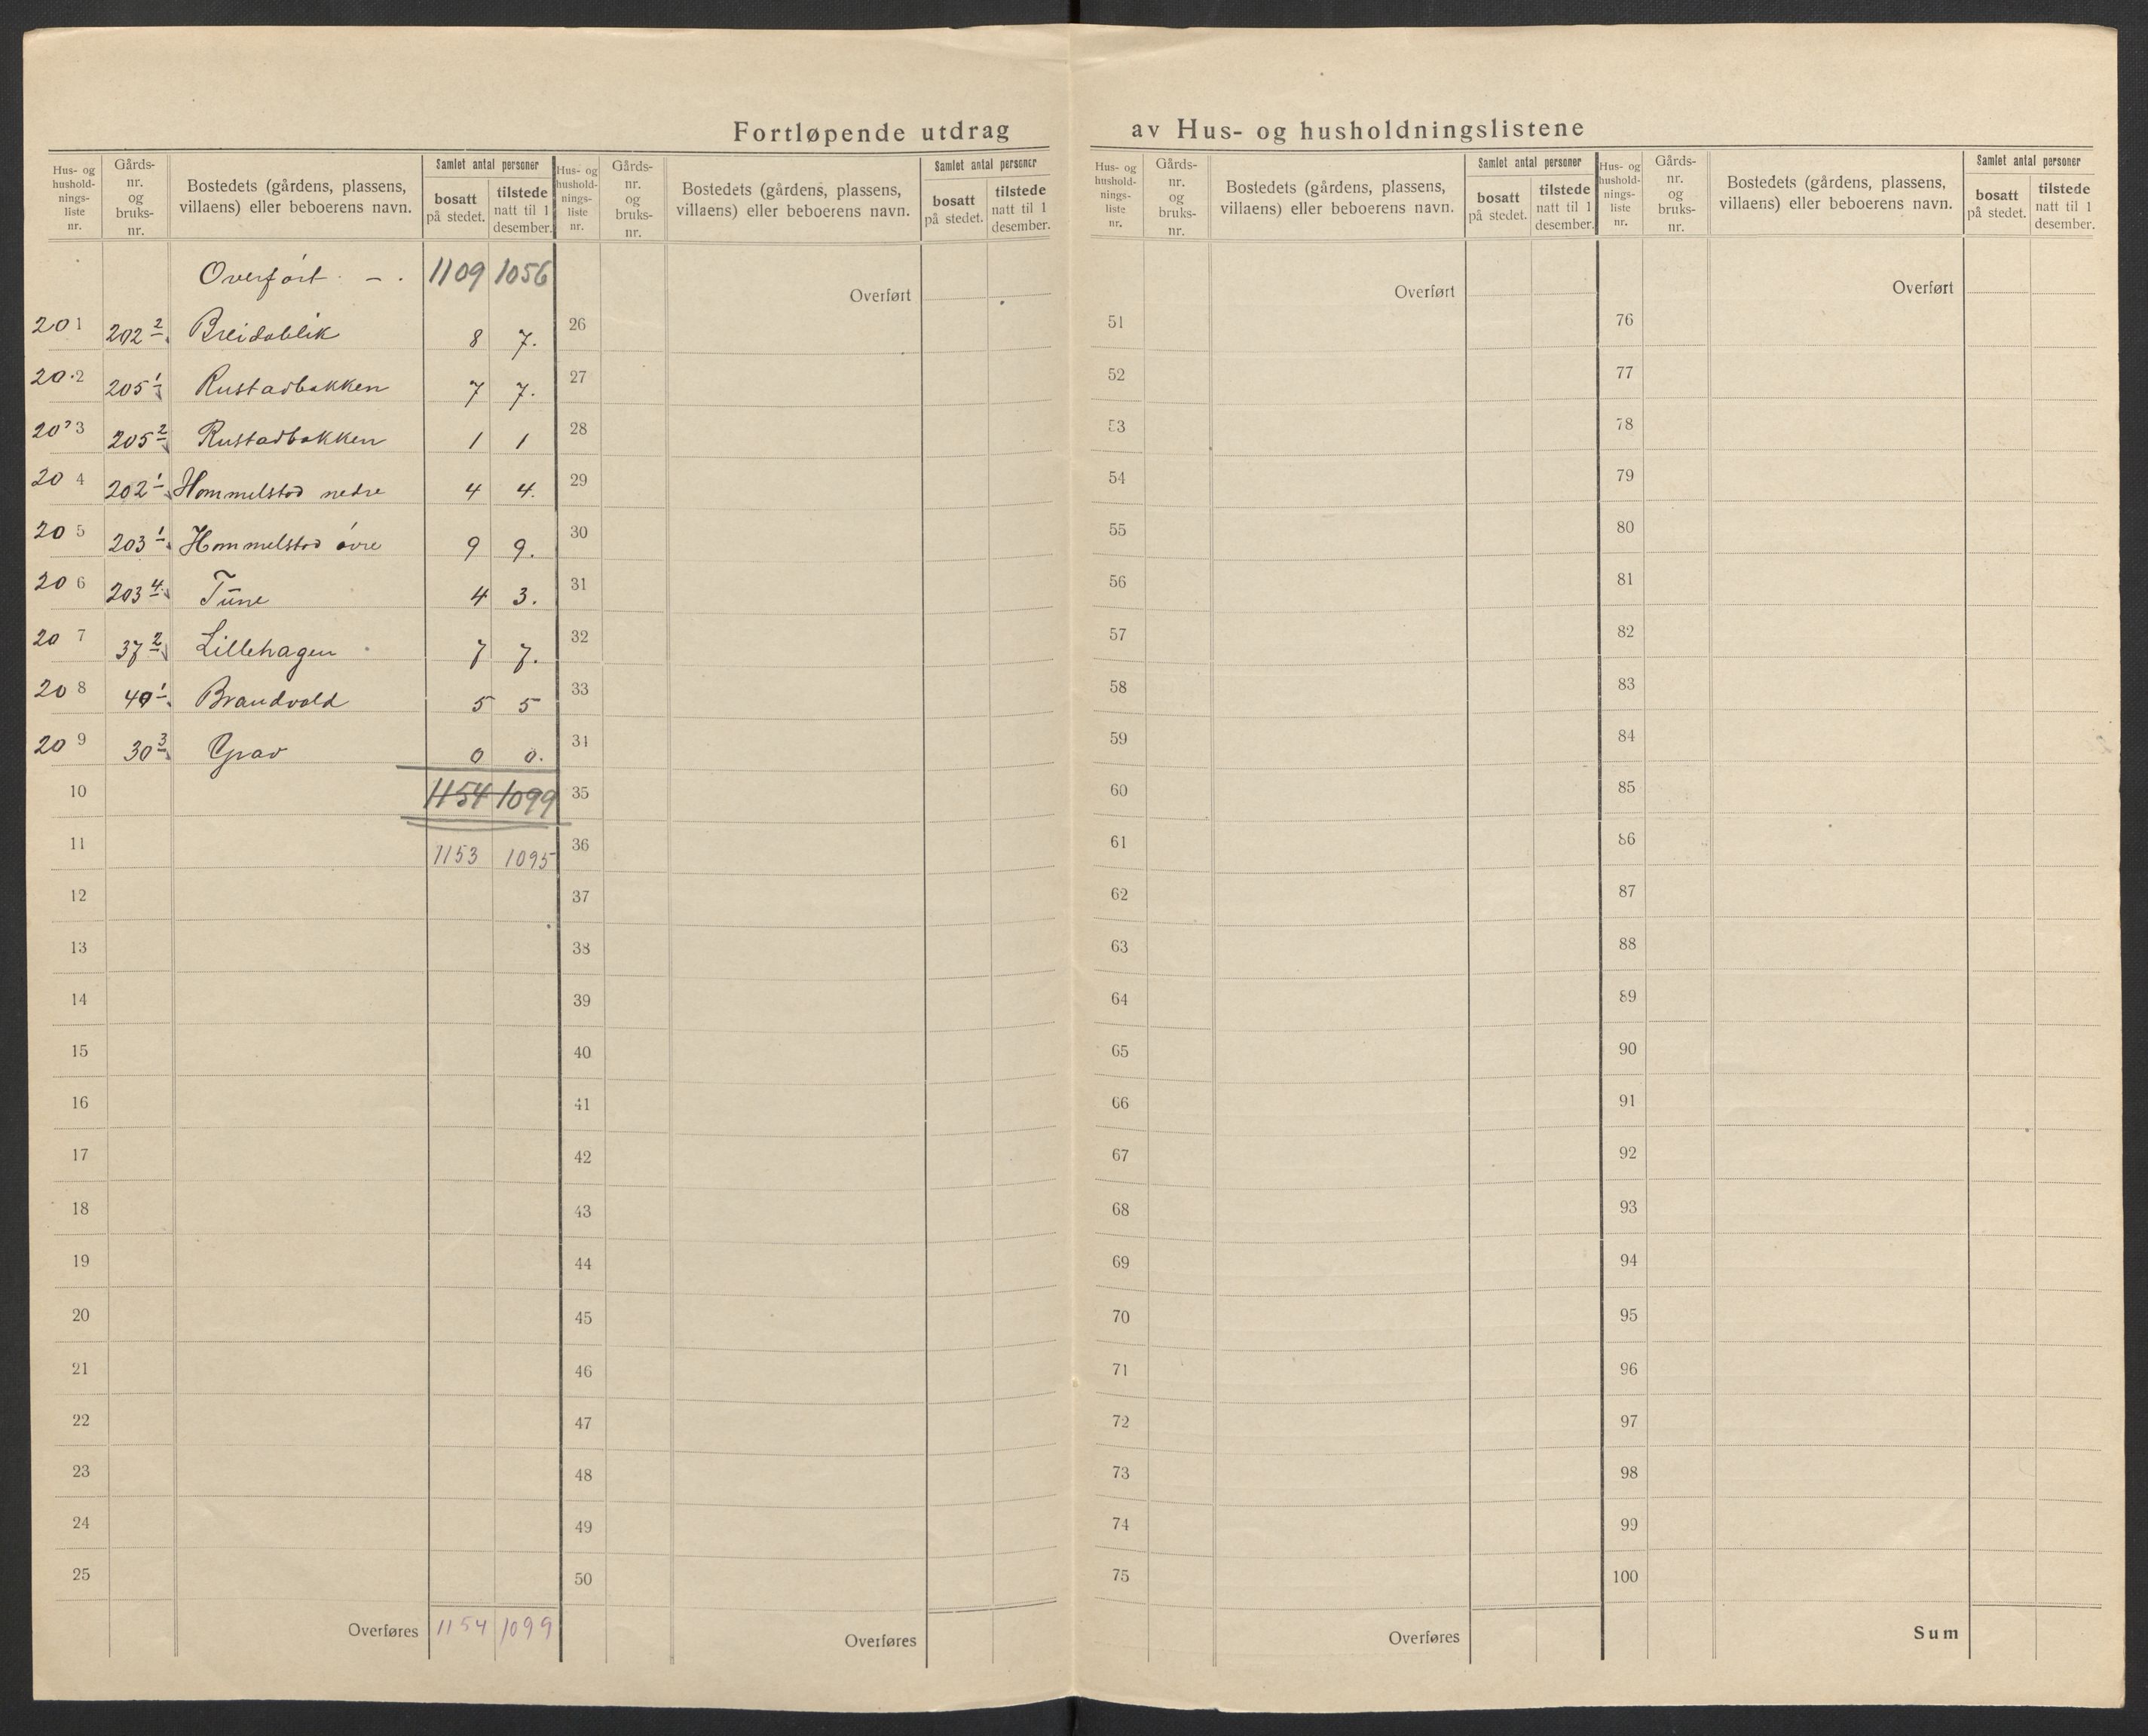 Fortløpende utdrag av Hus- og husholdningslistene
Hus- og hushold-nings-liste nr. Gårds-nr. og bruks-nr. Bostedets (gårdens, plassens, villaens) eller beboerens navn. Samlet antal personer bosatt på stedet. tilstede natt til 1 desember.
Overført - . 1109 1056
201 202 2 Breidablik 8 7.
20.2 205 1 Rustadbakken 7 7.
20 3 205 2 Rustadbakken 1 1
20 4 202 1 Hommelstad nedre 4 4.
20 5 203 1 Hommelstad óvre 9 9.
20 6 203 4 Tune 4 3.
20 7 37 2 Lillehagen 7 7.
20 8 40 1 Brandvold 5 5
20 9 30 3 Grav 0 0.
10 1154 1099
11 1153 1095
12
13
14
15
16
17
18
19
20
21
22
23
24
25
Overføres 1154 1099
Hus- og hushold-nings-liste nr. Gårds-nr. og bruks-nr. Bostedets (gårdens, plassens, villaens) eller beboerens navn. Samlet antal personer bosatt på stedet. tilstede natt til 1 desember.
Overført
26
27
28
29
30
31
32
33
34
35
36
37
38
39
40
41
42
43
44
45
46
47
48
49
50
Overføres
Hus- og hushold-nings-liste nr. Gårds-nr. og bruks-nr. Bostedets (gårdens, plassens, villaens) eller beboerens navn. Samlet antal personer bosatt på stedet. tilstede natt til 1 desember.
Overført
51
52
53
54
55
56
57
58
59
60
61
62
63
64
65
66
67
68
69
70
71
72
73
74
75
Overføres
Hus- og hushold-nings-liste nr. Gårds-nr. og bruks-nr. Bostedets (gårdens, plassens, villaens) eller beboerens navn. Samlet antal personer bosatt på stedet. tilstede natt til 1 desember.
Overført
76
77
78
79
80
81
82
83
84
85
86
87
88
89
90
91
92
93
94
95
96
97
98
99
100
Sum